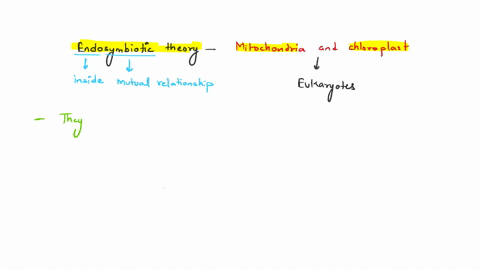 Endosymbiotic theory — Mitochondria and chloroplast
inside mutual relationship Eukaryotes
- They